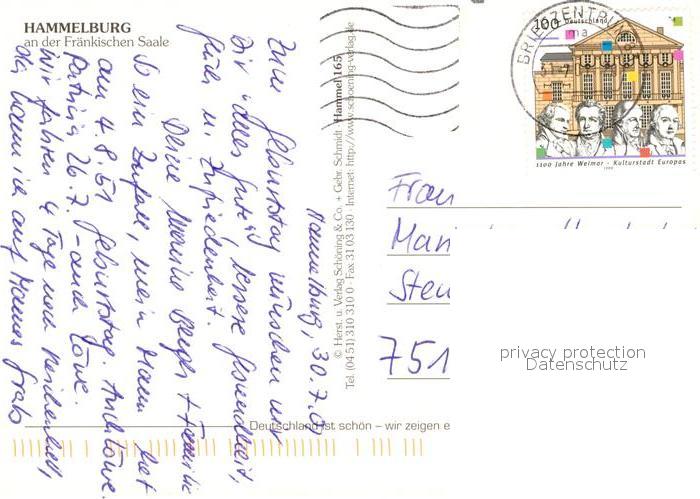 HAMMELBURG
an der Fränkischen Saale
Hammelburg, 30.7.
Zum Geburtstag wünschen wir
Dir alles Gute u. bessere Gesundheit,
Glück u. Zufriedenheit.
Deine + Familie
So ein Zufall, mein Mann hat
am 4.8.51 Geburtstag. Auch Löwe.
Patricia 26.7. – auch Löwe.
Wir fahren 4 Tage nach
da kann ich auf Mamas Grab
© Herst. u. Verlag Schöning & Co. + Gebr. Schmidt · Hammel 165
Tel. (04 51) 310 310 0 · Fax 31 03 130 · Internet: http://www.schoening-verlag.de
Deutschland ist schön – wir zeigen e
BRIEFZENTRUM
100 Deutschland
1100 Jahre Weimar - Kulturstadt Europas
1999
Frau
Man
Sten
751
privacy protection
Datenschutz